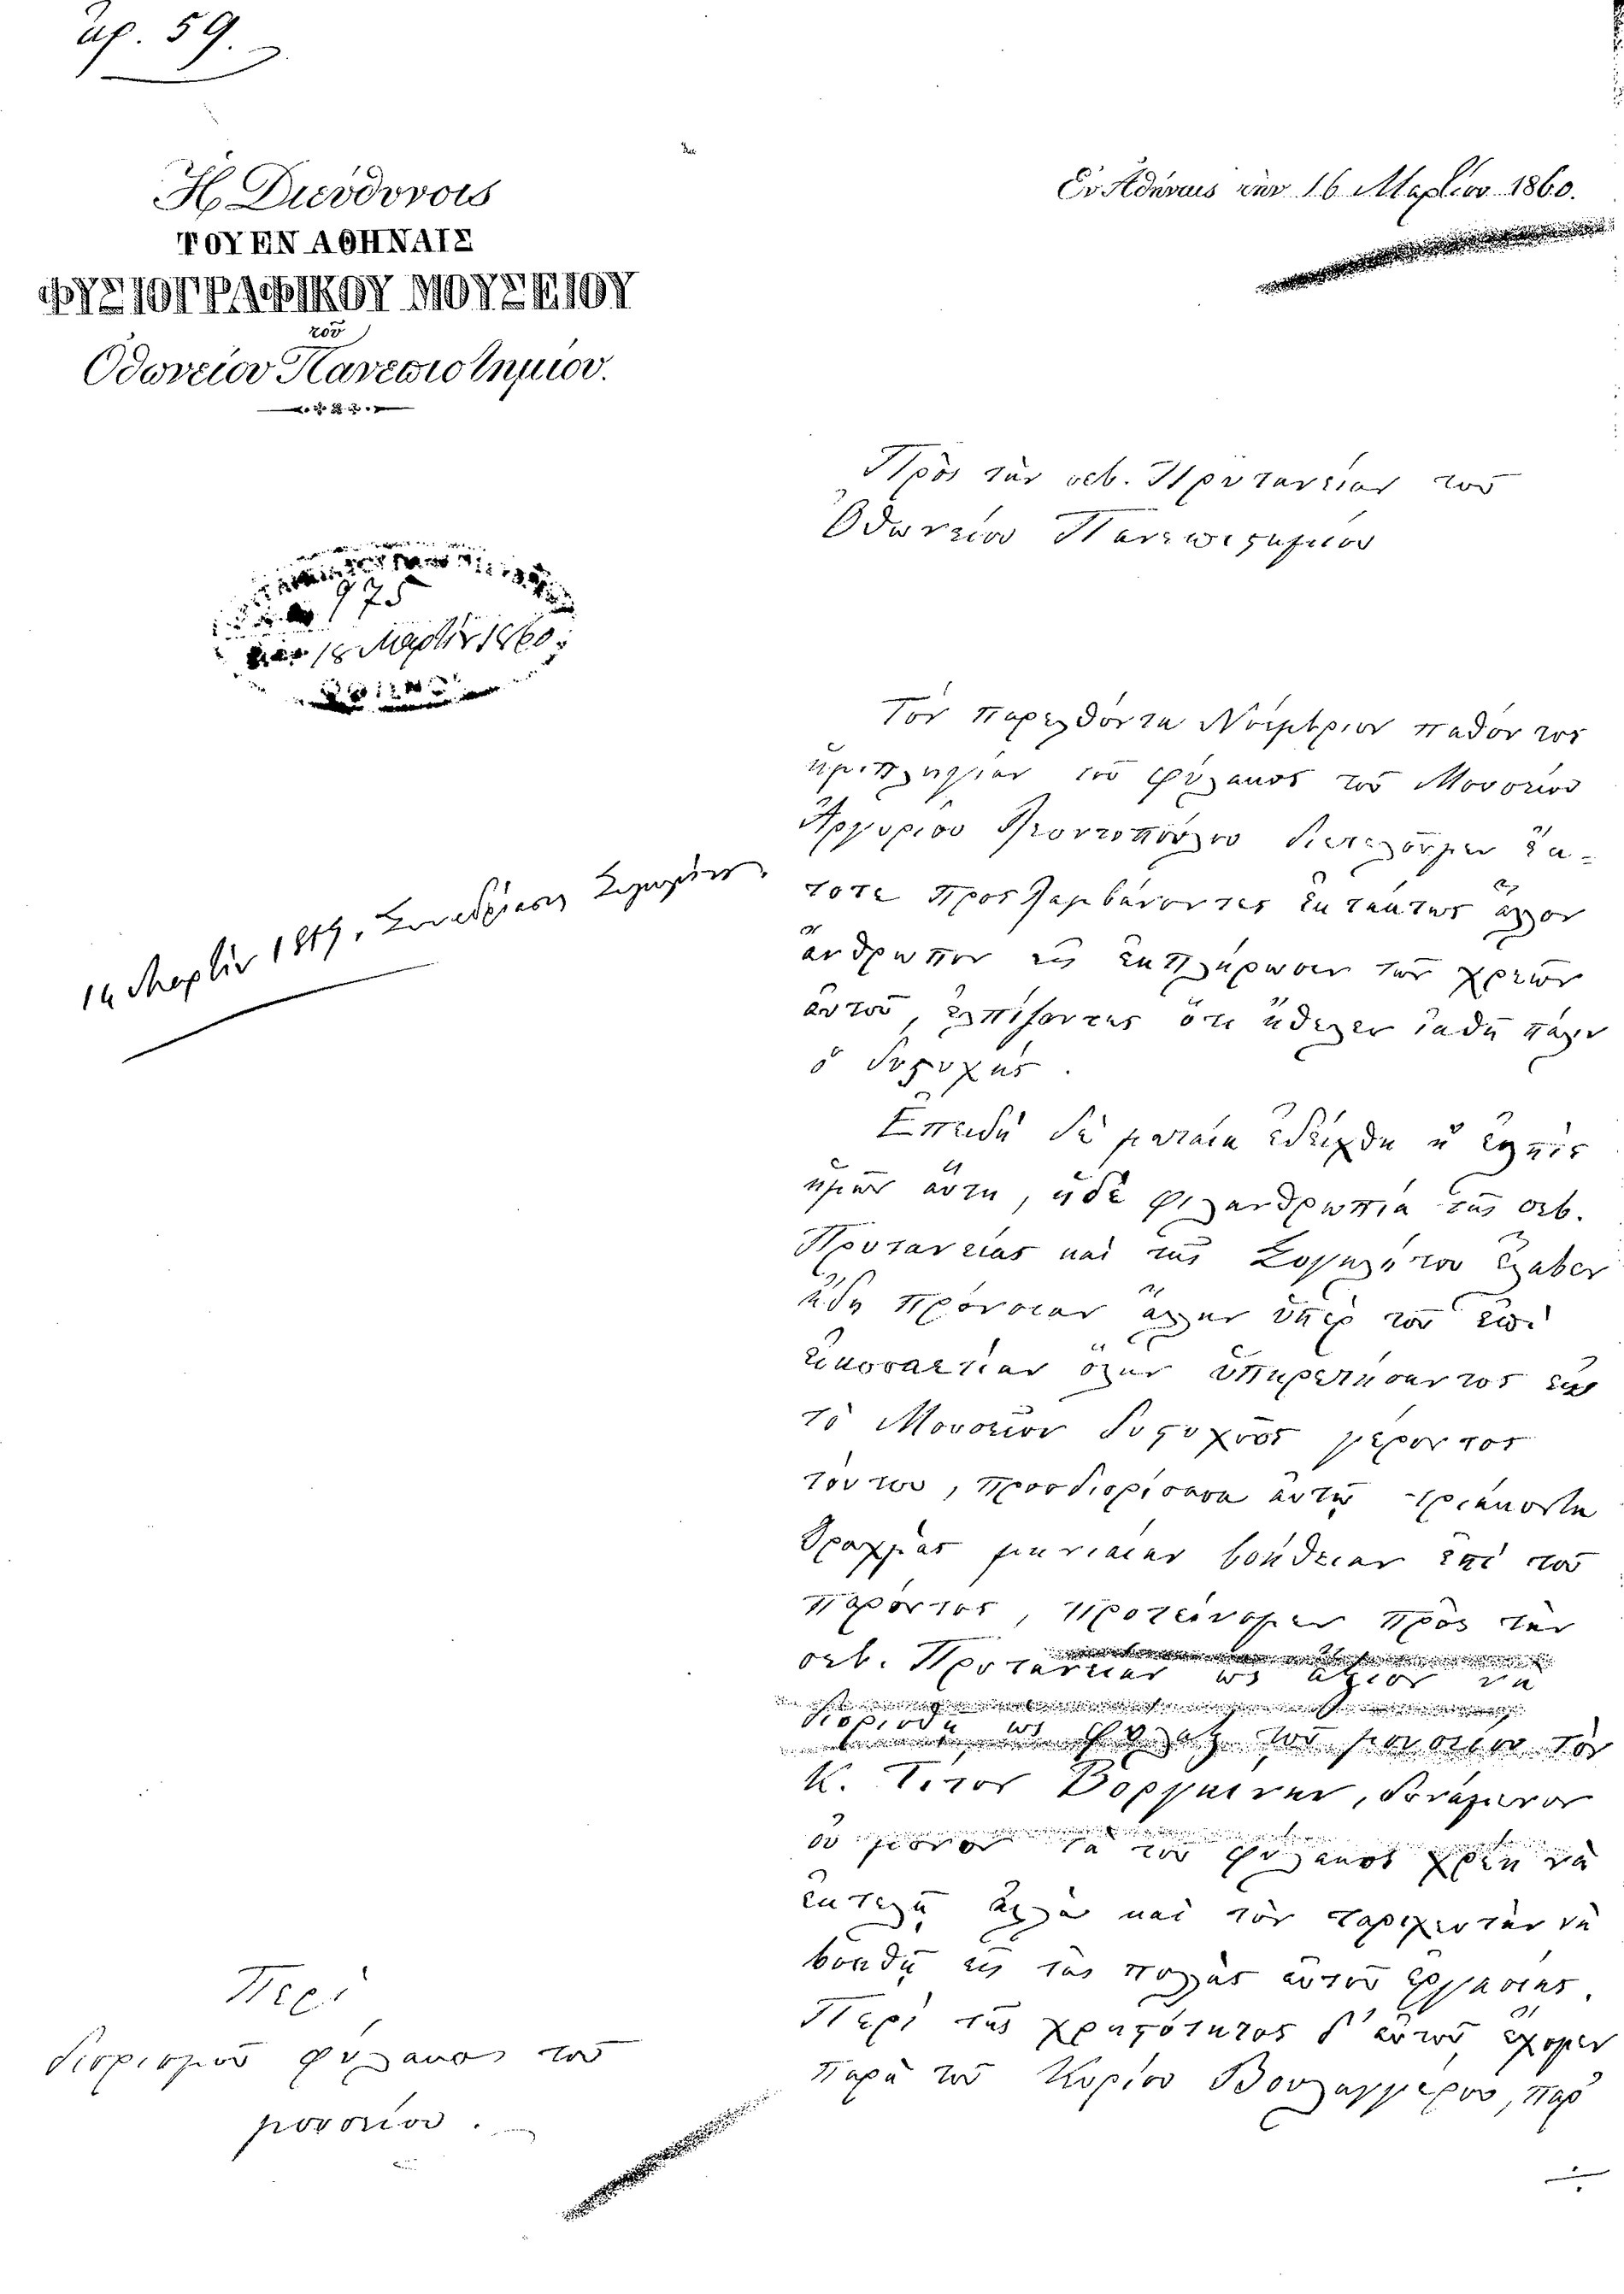 ἀρ. 59.
Ἡ Διεύθυνσις
ΤΟΥ ΕΝ ΑΘΗΝΑΙΣ
ΦΥΣΙΟΓΡΑΦΙΚΟΥ ΜΟΥΣΕΙΟΥ
τοῦ
Ὀθωνείου Πανεπιστημίου.
Ἐν Ἀθήναις τὴν 16 Μαρτίου 1860.
Πρὸς τὴν σεβ. Πρυτανείαν τοῦ
Ὀθωνείου Πανεπιστημίου
975
18 Μαρτίου 1860
Τὸν παρελθόντα Νοέμβριον παθόντος
ἡμιπληγίαν τοῦ φύλακος τοῦ Μουσείου
Ἀργυρίου Λεοντοπούλου διετελοῦμεν ἔκ-
τοτε προσλαμβάνοντες ἐκτάκτως ἄλλον
ἄνθρωπον εἰς ἐκπλήρωσιν τῶν χρεῶν
αὐτοῦ, ἐλπίζοντες ὅτι ἤθελεν ἰαθῆ πάλιν
ὁ δυστυχής.
Ἐπειδὴ δὲ ματαία ἐδείχθη ἡ ἐλπὶς
ἡμῶν αὕτη, ἡ δὲ φιλανθρωπία τῆς σεβ.
Πρυτανείας καὶ τῆς Συγκλήτου ἔλαβεν
ἤδη πρόνοιαν ἄλλην ὑπὲρ τοῦ ἐπὶ
εἰκοσαετίαν ὅλην ὑπηρετήσαντος εἰς
τὸ Μουσεῖον δυστυχοῦς γέροντος
τούτου, προσδιορίσασα αὐτῷ τριάκοντα
δραχμὰς μηνιαίαν βοήθειαν ἐπὶ τοῦ
παρόντος, προτείνομεν πρὸς τὴν
σεβ. Πρυτανείαν ὡς ἄξιον νὰ
διορισθῇ ὡς φύλαξ τοῦ μουσείου τὸν
Κ. Τίτον Βοργκίνην, δυνάμενον
οὐ μόνον τὰ τοῦ φύλακος χρέη νὰ
ἐκτελῇ ἀλλὰ καὶ τὸν ταριχευτὴν νὰ
βοηθῇ εἰς τὰς πολλὰς αὐτοῦ ἐργασίας.
Περὶ τῆς χρηστότητος δ' αὐτοῦ ἔχομεν
παρὰ τοῦ Κυρίου Βουλαγγέρου, παρ'
14 Μαρτίου 1859, Συνεδρίασις Συγκλήτου.
Περὶ
διορισμοῦ φύλακος τοῦ
μουσείου.